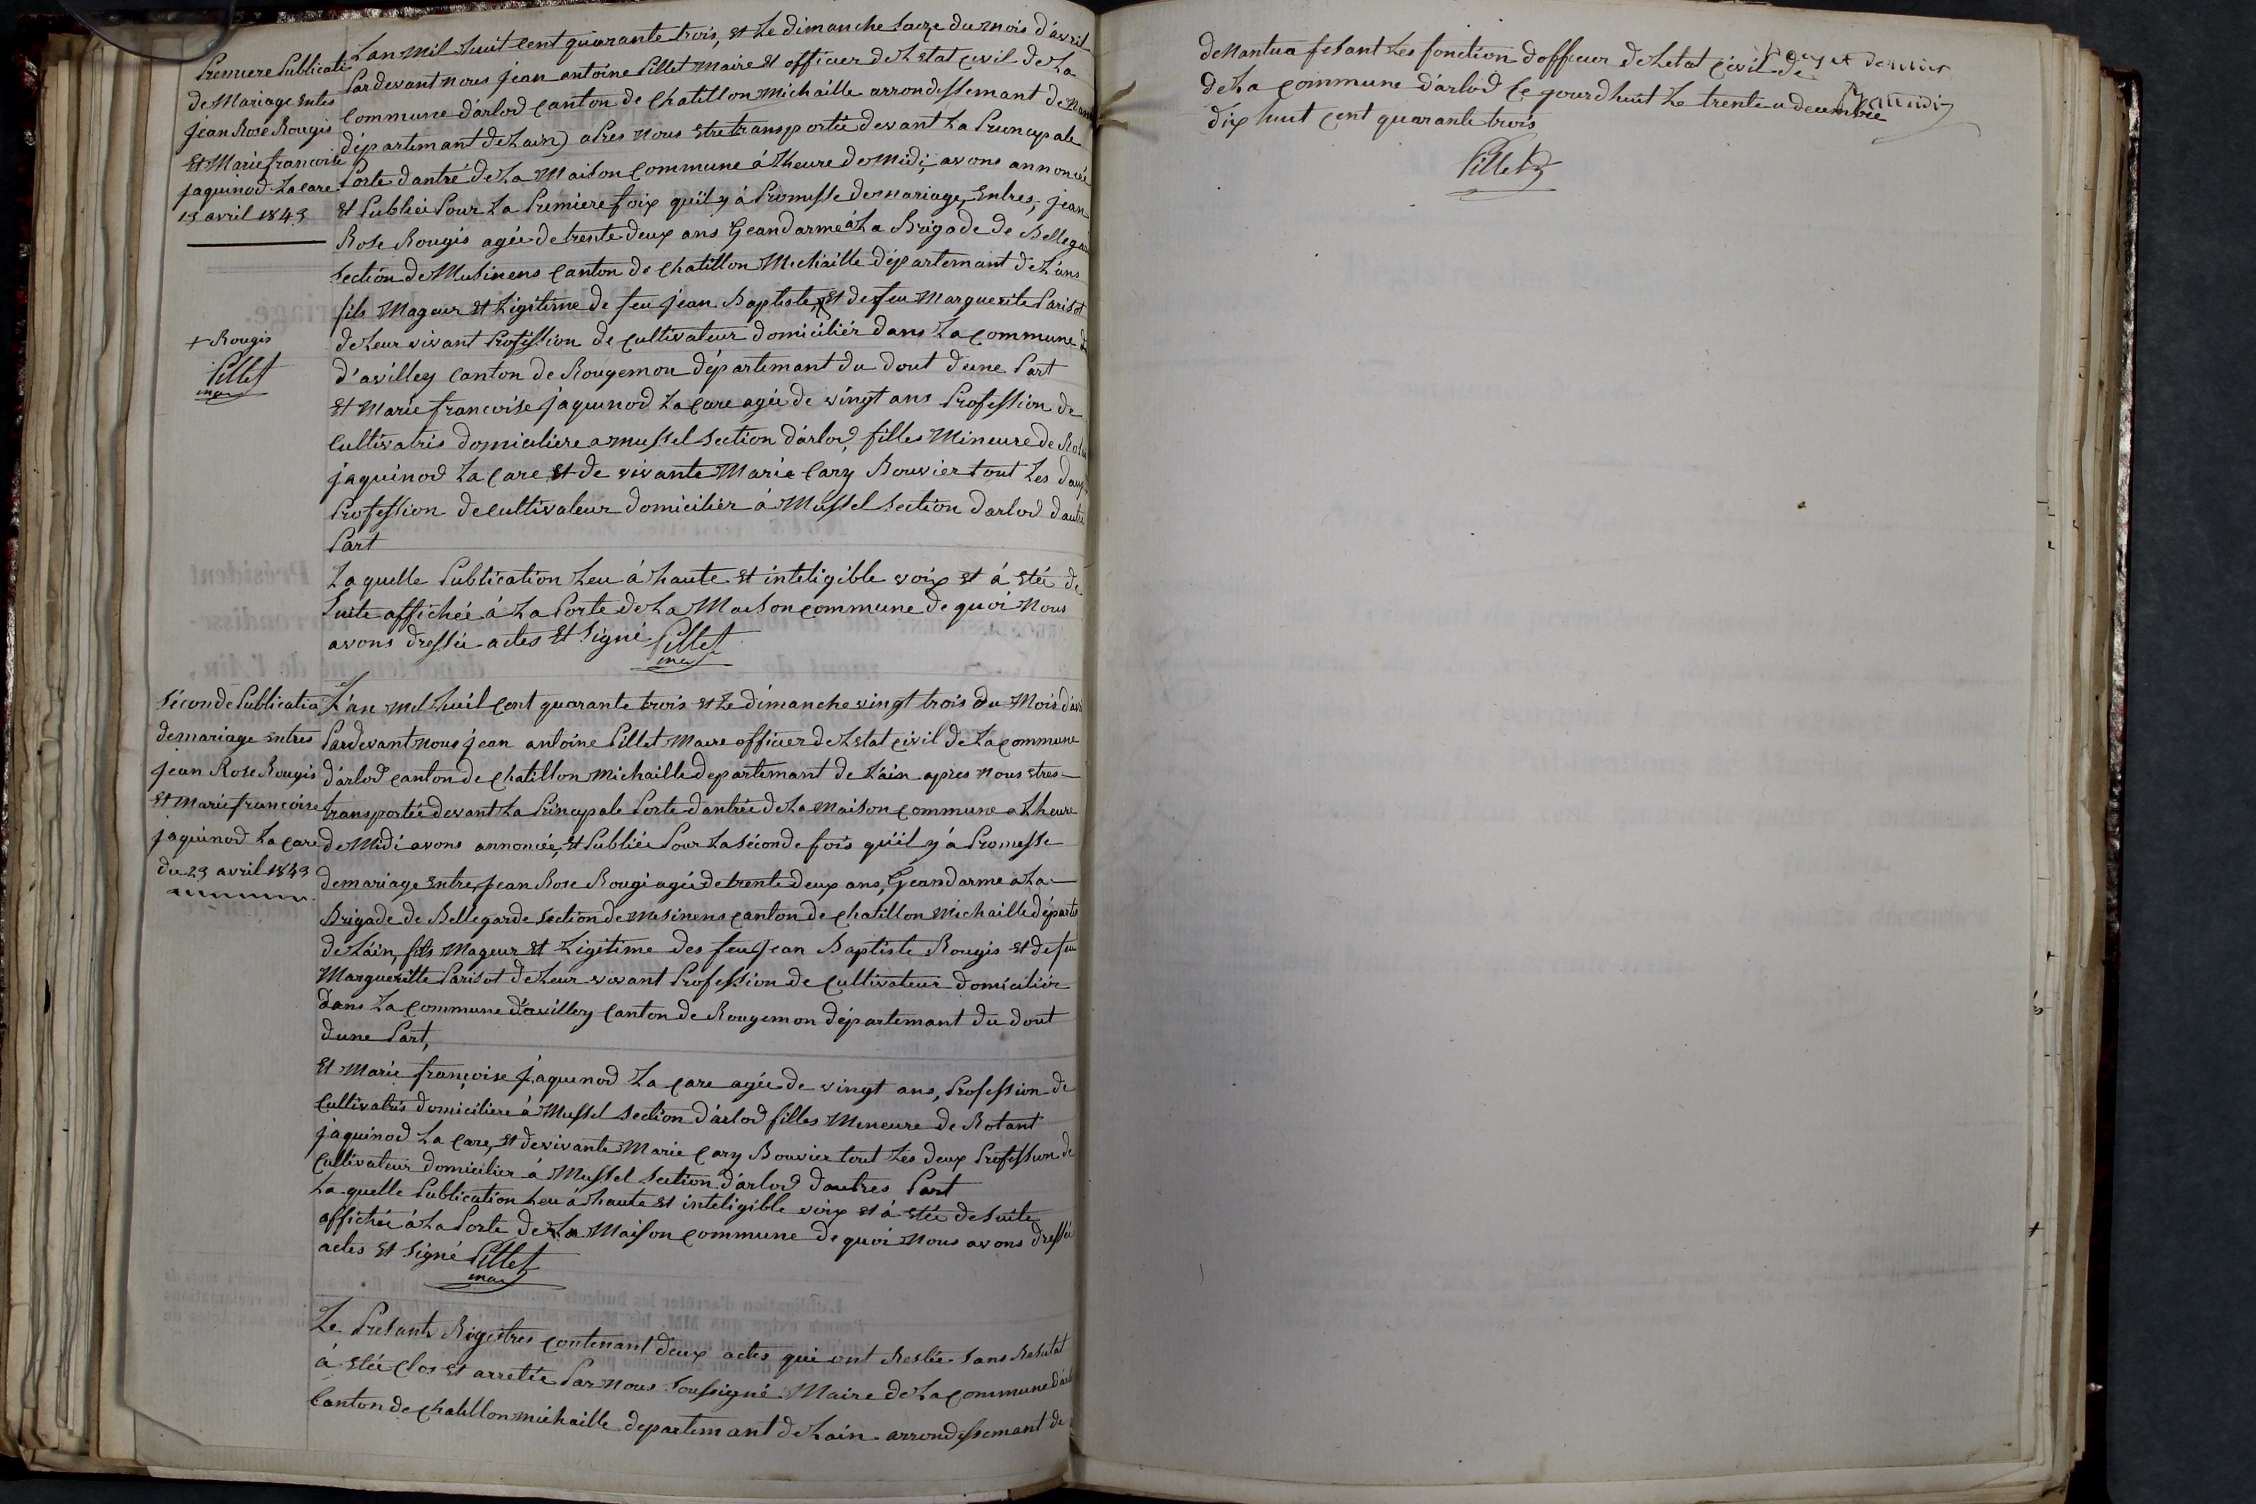 Premiere Publicati
de Mariage entres
jean Rose Rougis
Et Marie francoise
jaquinod La care
15 avril 1843
+ Rougis
Pillet
maire
L'an mil huit cent quarante trois, et Le dimanche saize du mois d'avril
Pardevant nous jean antoine Pillet maire et officier de L'Etat civil de La
commune d'arlod canton de Chatillon Michaille arrondessemant de Nant
départemant de Lain) apres nous etre transportée devant La Principale
Porte dantré de La Maison commune à Lheure de Midi, avons annoncée
Et Publiée Pour La Premiere foix qu'il y à Promesse de mariage, Entres, jean
Rose Rougis agée de trente deux ans Geandarme à La Brigade de Bellega
section de Musinens canton de Chatillon Michaille départemant de L'ains
fils Mageur et Ligitime de feu jean Baptiste + et de feu Marguerite Parisot
de Leur vivant Profession de cultivateur domiciliér dans La commune
d'avilley canton de Rougemon départemant du dout d'une Part
Et Marie francoise jaquinod La care agée de vingt ans Profession de
cultivatris domiciliere a mussel section d'arlod, filles Mineure de Rota
jaquinod La care et de vivante Marie Cary Bouvier tout Les daux
Profession de cultivateur domiciliér à Mussel section d'arlod dautre
Part
Laquelle Publication Leu à haute et inteligible voix et à etée de
suite affichée à La Porte de La Maison commune de quoi nous
avons dressée actes Et signé Pillet
maire
Séconde Publicatio
de mariage entres
jean Rose Rougis
Et Marie francoise
jaquinod La care
du 23 avril 1843
L'an mil huit cent quarante trois et Le dimanche vingt trois du Mois d'avr
Pardevant nous jean antoine Pillet Maire officier de L'etat civil de La commune
d'arlod canton de chatillon michaille departemant de L'ain apres nous etres
transportée devant La Principale Porte dantrée de La maison commune a Lheure
de Midi avons annoncée, et Publiée Pour La séconde fois qu'il y à Promesse
de mariage entre, Jean Rose Rougi agée de trente deux ans, Geandarme a La
Brigade de Bellegarde section de Musinens canton de chatillon michaille départe
de L'ain, fils Mageur et Ligitime des feu Jean Baptiste Rougis et de feu
Margueritte Parisot de Leur vivant Profession de cultivateur domiciliér
dans La commune d'avilley canton de Rougemon départemant du dout
dune Part,
Et Marie françoise Jaquinod La care agée de vingt ans, Profession de
cultivatris domiciliere à Mussel section d'arlod filles Meneure de Rotant
jaquinod La care, et devivante Marie cary Bouvier tout Les deux Profession de
cultivateur domicilier à Mussel section d'arlod dautres Part
Laquelle Publication Leu à haute et inteligible voix et à etée de suite
affichée à La Porte de La Maison commune de quoi nous avons dressée
actes Et signé Pillet
maire
Le Présants Régistres contenant deux actes qui ont Restée sans Resutat
à etée clos et arretée Par nous soussigné Maire de La commune d'arl
Canton de chatillon michaille departemant de Lain arrondessemant de
de Nantua fesant Les fonction d'officier de Letat civil de
de La commune d'arlod ce gourdhuit Le trente u decembre
dix huit cent quarante trois
Pillet
et dernier